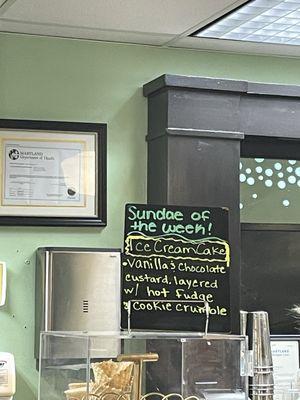 MARYLAND
Department of Health
Sundae of
the week!
Ice Cream Cake
• Vanilla & Chocolate
custard, layered
w/ hot fudge
& cookie crumble